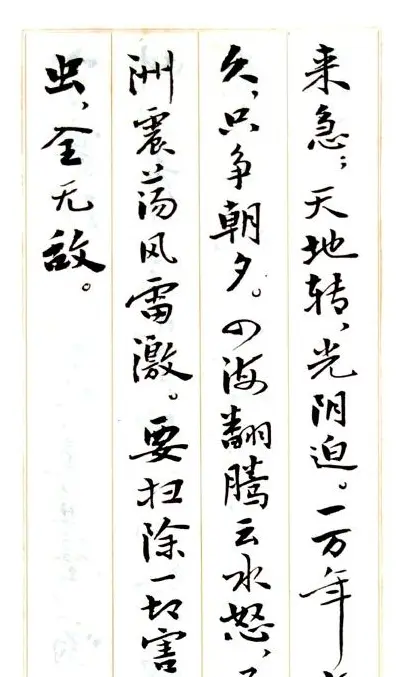 来急；天地转，光阴迫。一万年
久，只争朝夕。四海翻腾云水怒，
洲震荡风雷激。要扫除一切害
虫，全无敌。